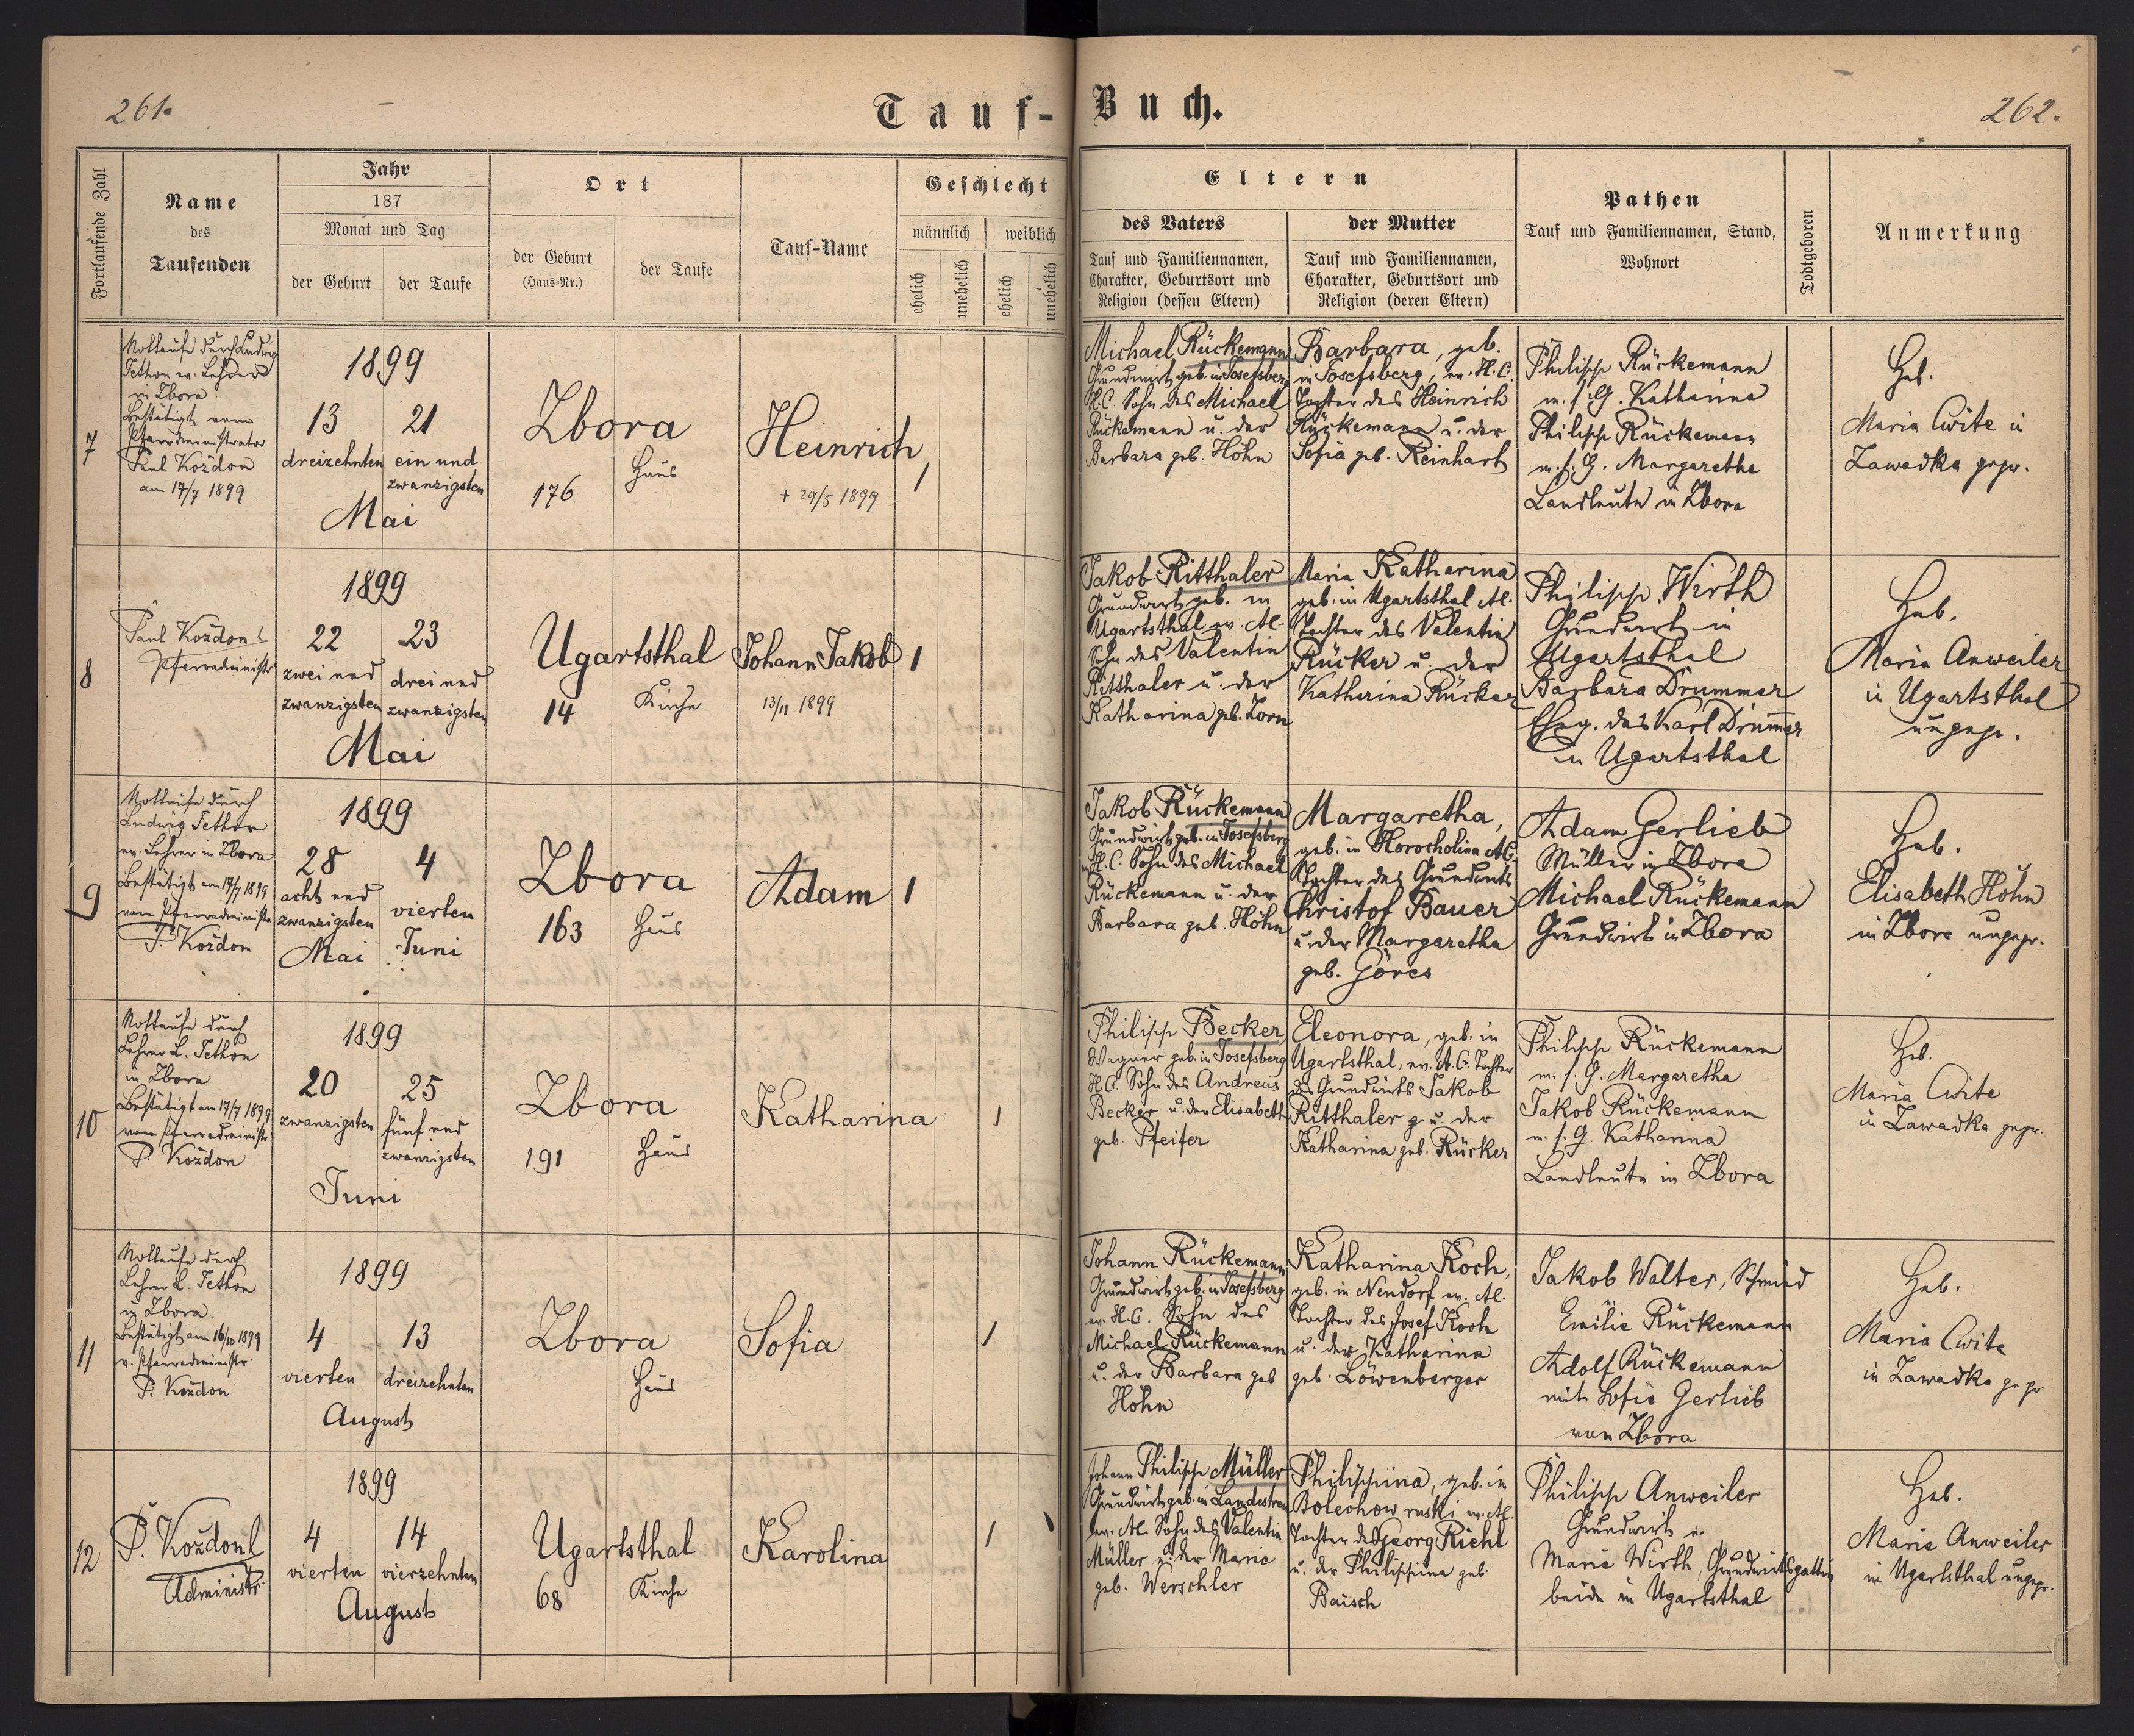 261.
Tauf-
Fortlaufende Zahl
Name
des
Taufenden
Jahr
187
Monat und Tag
der Geburt
der Taufe
Ort
der Geburt
(Haus-Nr.)
der Taufe
Tauf-Name
Geschlecht
männlich
weiblich
ehelich
unehelich
ehelich
unehelich
Buch.
262.
Eltern
des Vaters
Tauf und Familiennamen,
Charakter, Geburtsort und
Religion (dessen Eltern)
der Mutter
Tauf und Familiennamen,
Charakter, Geburtsort und
Religion (deren Eltern)
Pathen
Tauf und Familiennamen, Stand,
Wohnort
Todtgeboren
Anmerkung
7
Nottaufe durch Ludwig
Tethon ev. Lehrer
in Zbora
Bestätigt vom
Pfarradministrator
Paul Kozdon
am 17/7 1899
1899
13
dreizehnten
21
ein und
zwanzigsten
Mai
Zbora
176
Haus
Heinrich
+ 29/5 1899
1
Michael Rückemann
Grundwirt geb. in Josefsberg
H.C. Sohn des Michael
Rückemann u. der
Barbara geb. Höhn
Barbara, geb.
in Josefsberg, ev. H.C.
Tochter des Heinrich
Rückemann u. der
Sofia geb. Reinhart
Philipp Rückemann
m. s. G. Katharina
Philipp Rückemann
m. s. G. Margaretha
Landleute in Zbora
Heb.
Maria Cwite in
Zawadka gepr.
8
Paul Kozdon
Pfarradministr
1899
22
zwei und
zwanzigsten
23
drei und
zwanzigsten
Mai
Ugartsthal
14
Kirche
Johann Jakob
13/11 1899
1
Jakob Ritthaler
Grundwirt geb. in
Ugartsthal ev. AC.
Sohn des Valentin
Ritthaler u. der
Katharina geb. Zorn
Maria Katharina
geb. in Ugartsthal AC.
Tochter des Valentin
Rücker u. der
Katharina Rücker
Philipp Wirth
Grundwirt in
Ugartsthal
Barbara Drummer
Eheg. des Karl Drummer
in Ugartsthal
Heb.
Maria Anweiler
in Ugartsthal
ungepr.
9
Nottaufe durch
Ludwig Tethon
ev. Lehrer in Zbora
Bestätigt am 17/7 1899
vom Pfarradministr
P. Kozdon
1899
28
acht und
zwanzigsten
Mai
4
vierten
Juni
Zbora
163
Haus
Adam
1
Jakob Rückemann
Grundwirt geb. in Josefsberg
H.C. Sohn des Michael
Rückemann u. der
Barbara geb. Höhn
Margaretha,
geb. in Horocholina AC.
Tochter des Grundwirts
Christof Bauer
u. der Margaretha
geb. Göres
Adam Gerlieb
Müller in Zbora
Michael Rückemann
Grundwirt in Zbora
Heb.
Elisabeth Höhn
in Zbora ungepr.
10
Nottaufe durch
Lehrer L. Tethon
in Zbora
Bestätigt am 17/7 1899
vom Pfarradministr
P. Kozdon
1899
20
zwanzigsten
25
fünf und
zwanzigsten
Juni
Zbora
191
Haus
Katharina
1
Philipp Becker
Wagner geb. in Josefsberg
H.C. Sohn des Andreas
Becker u. der Elisabeth
geb. Pfeifer
Eleonora, geb. in
Ugartsthal, ev. A.C. Tochter
des Grundwirts Jakob
Ritthaler u. der
Katharina geb. Rücker
Philipp Rückemann
m. s. G. Margaretha
Jakob Rückemann
m. s. G. Katharina
Landleute in Zbora
Heb.
Maria Cwite
in Zawadka gepr.
11
Nottaufe durch
Lehrer L. Tethon
in Zbora
Bestätigt am 16/10 1899
v. Pfarradministr.
P. Kozdon
1899
4
vierten
13
dreizehnten
August
Zbora
Haus
Sofia
1
Johann Rückemann
Grundwirt geb. in Josefsberg
ev. H.C. Sohn des
Michael Rückemann
u. der Barbara geb
Höhn
Katharina Koch,
geb. in Neudorf ev. AC.
Tochter des Josef Koch
u. der Katharina
geb. Löwenberger
Jakob Walter, Schmied
Emilie Rückemann
Adolf Rückemann
mit Sofie Gerlieb
von Zbora
Heb.
Maria Cwite
in Zawadka gepr.
12
P. Kozdon
Administr.
1899
4
vierten
14
vierzehnten
August
Ugartsthal
68
Kirche
Karolina
1
Johann Philipp Müller
Grundwirt geb. in Landestreu
ev. AC. Sohn des Valentin
Müller u. der Marie
geb. Werschler
Philippina, geb. in
Bolechow ruski ev. AC.
Tochter des Georg Riehl
u. der Philippina geb.
Baisch
Philipp Anweiler
Grundwirt u.
Marie Wirth, Grundwirtsgattin
beide in Ugartsthal
Heb.
Marie Anweiler
in Ugartsthal ungepr.